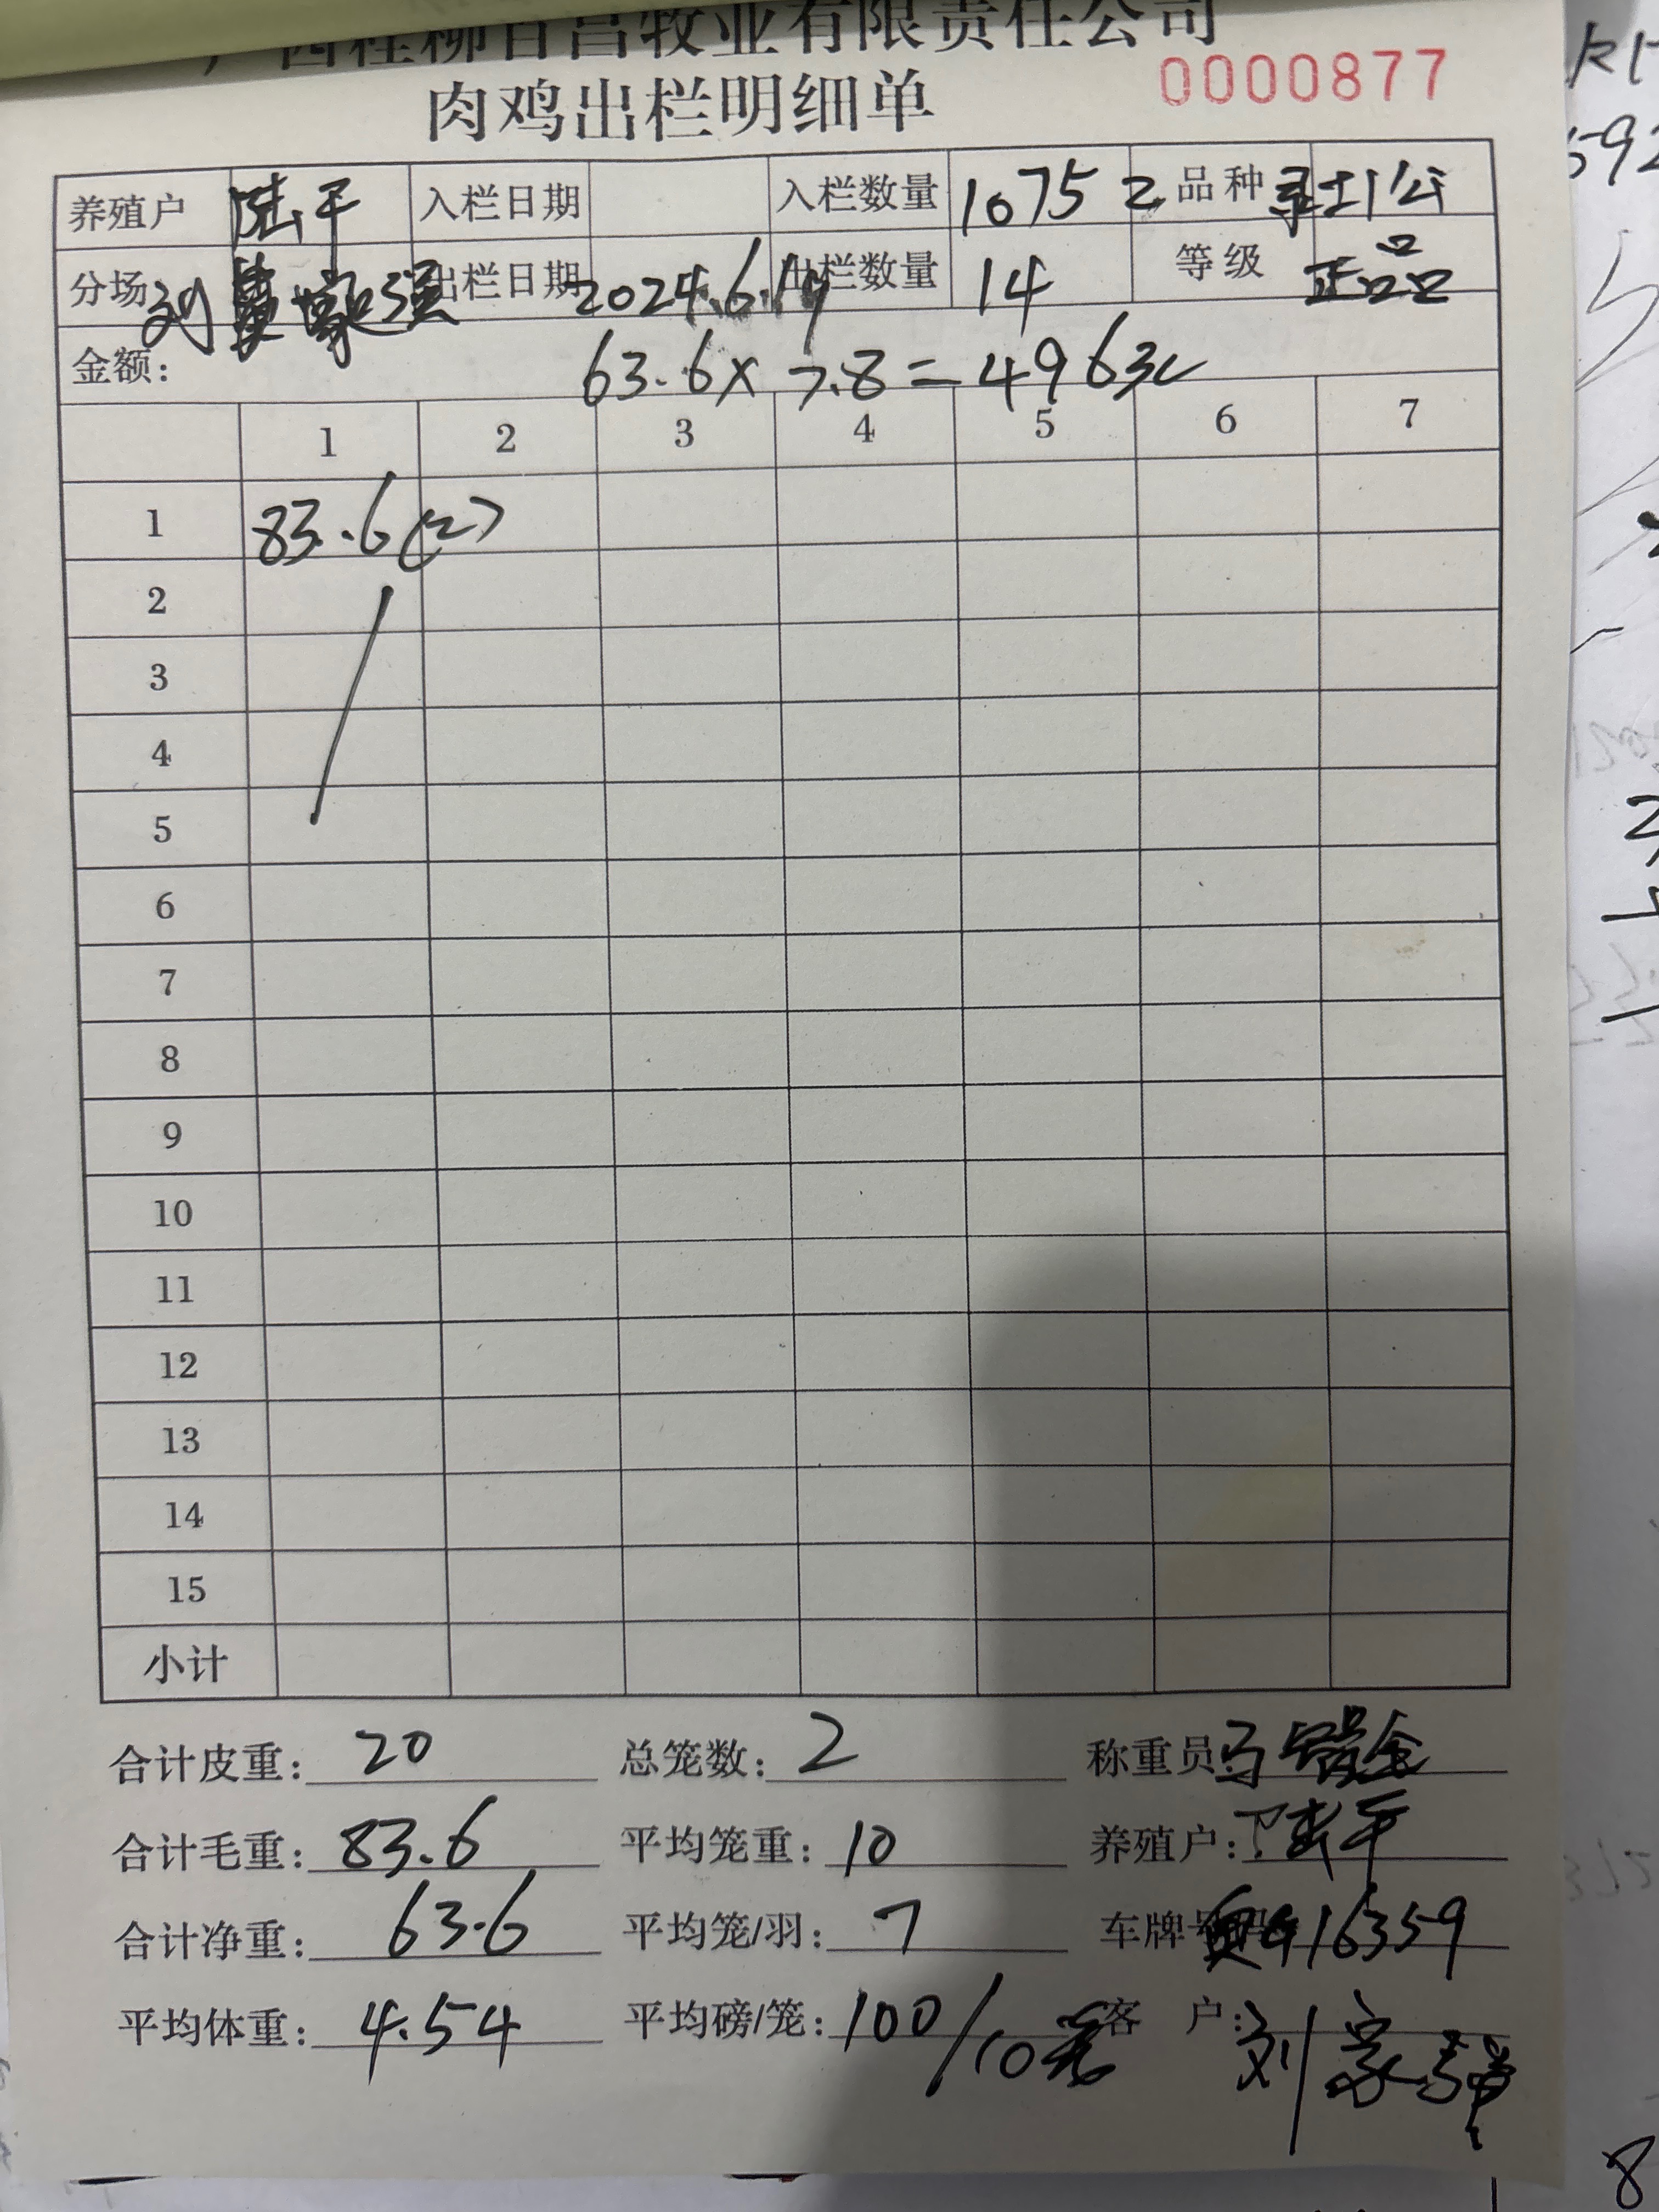 广西桂柳百昌牧业有限责任公司
肉鸡出栏明细单 0000877
养殖户 陆平 入栏日期 入栏数量 1075 品种 土1公
分场 刘 强 出栏日期 2024.6.19 出栏数量 14 等级 正品
金额: 63.6×7.8=496元
1 2 3 4 5 6 7
1 83.6(2)
2
3
4
5
6
7
8
9
10
11
12
13
14
15
小计
合计皮重: 20 总笼数: 2 称重员
合计毛重: 83.6 平均笼重: 10 养殖户: 陆平
合计净重: 63.6 平均笼/羽: 7 车牌号码: 16359
平均体重: 4.54 平均磅/笼: 100/10笼 客 户: 刘家